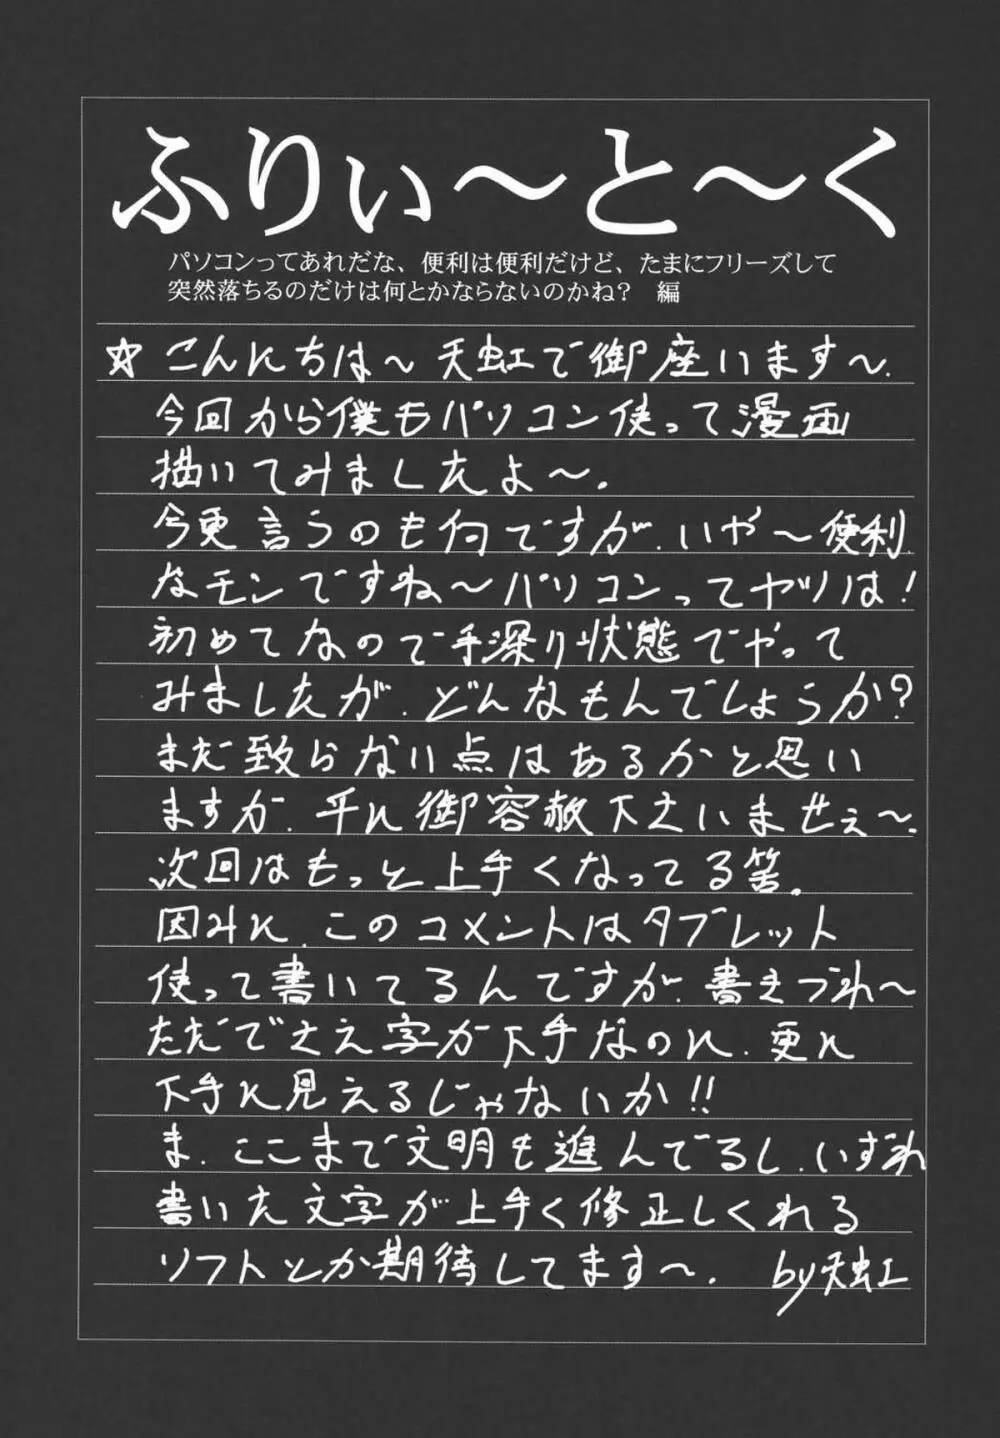 ふりぃ～と～く
パソコンってあれだな、便利は便利だけど、たまにフリーズして
突然落ちるのだけは何とかならないのかね？　編
☆こんにちは～天虹で御座います～.
今回から僕もパソコン使って漫画
描いてみましたよ～.
今更言うのも何ですが.いや～便利.
なモンですね～パソコンってヤツは!
初めてなので手深り状態でやって
みましたが.どんなもんでしょうか?
まだ致らない点はあるかと思い
ますが.平に御容赦下さいませぇ～.
次回はもっと上手くなってる筈.
因みに.このコメントはタブレット
使って書いてるんですが.書きづれ～
ただでさえ字が下手なのに.更に
下手に見えるじゃないか!!
ま.ここまで文明も進んでるし.いずれ
書いた文字が上手く修正しくれる
ソフトとか期待してます～. by天虹